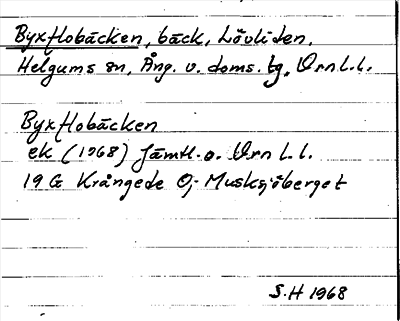 Byxflobäcken, bäck, Lövliden,
Helgums sn, Ång. v. doms. tg, Vrn l.l.
Byxflobäcken
ek (1968) Jämtl. o. Vrn l. l.
19 G Krångede Oj Musksjöberget
S.H 1968